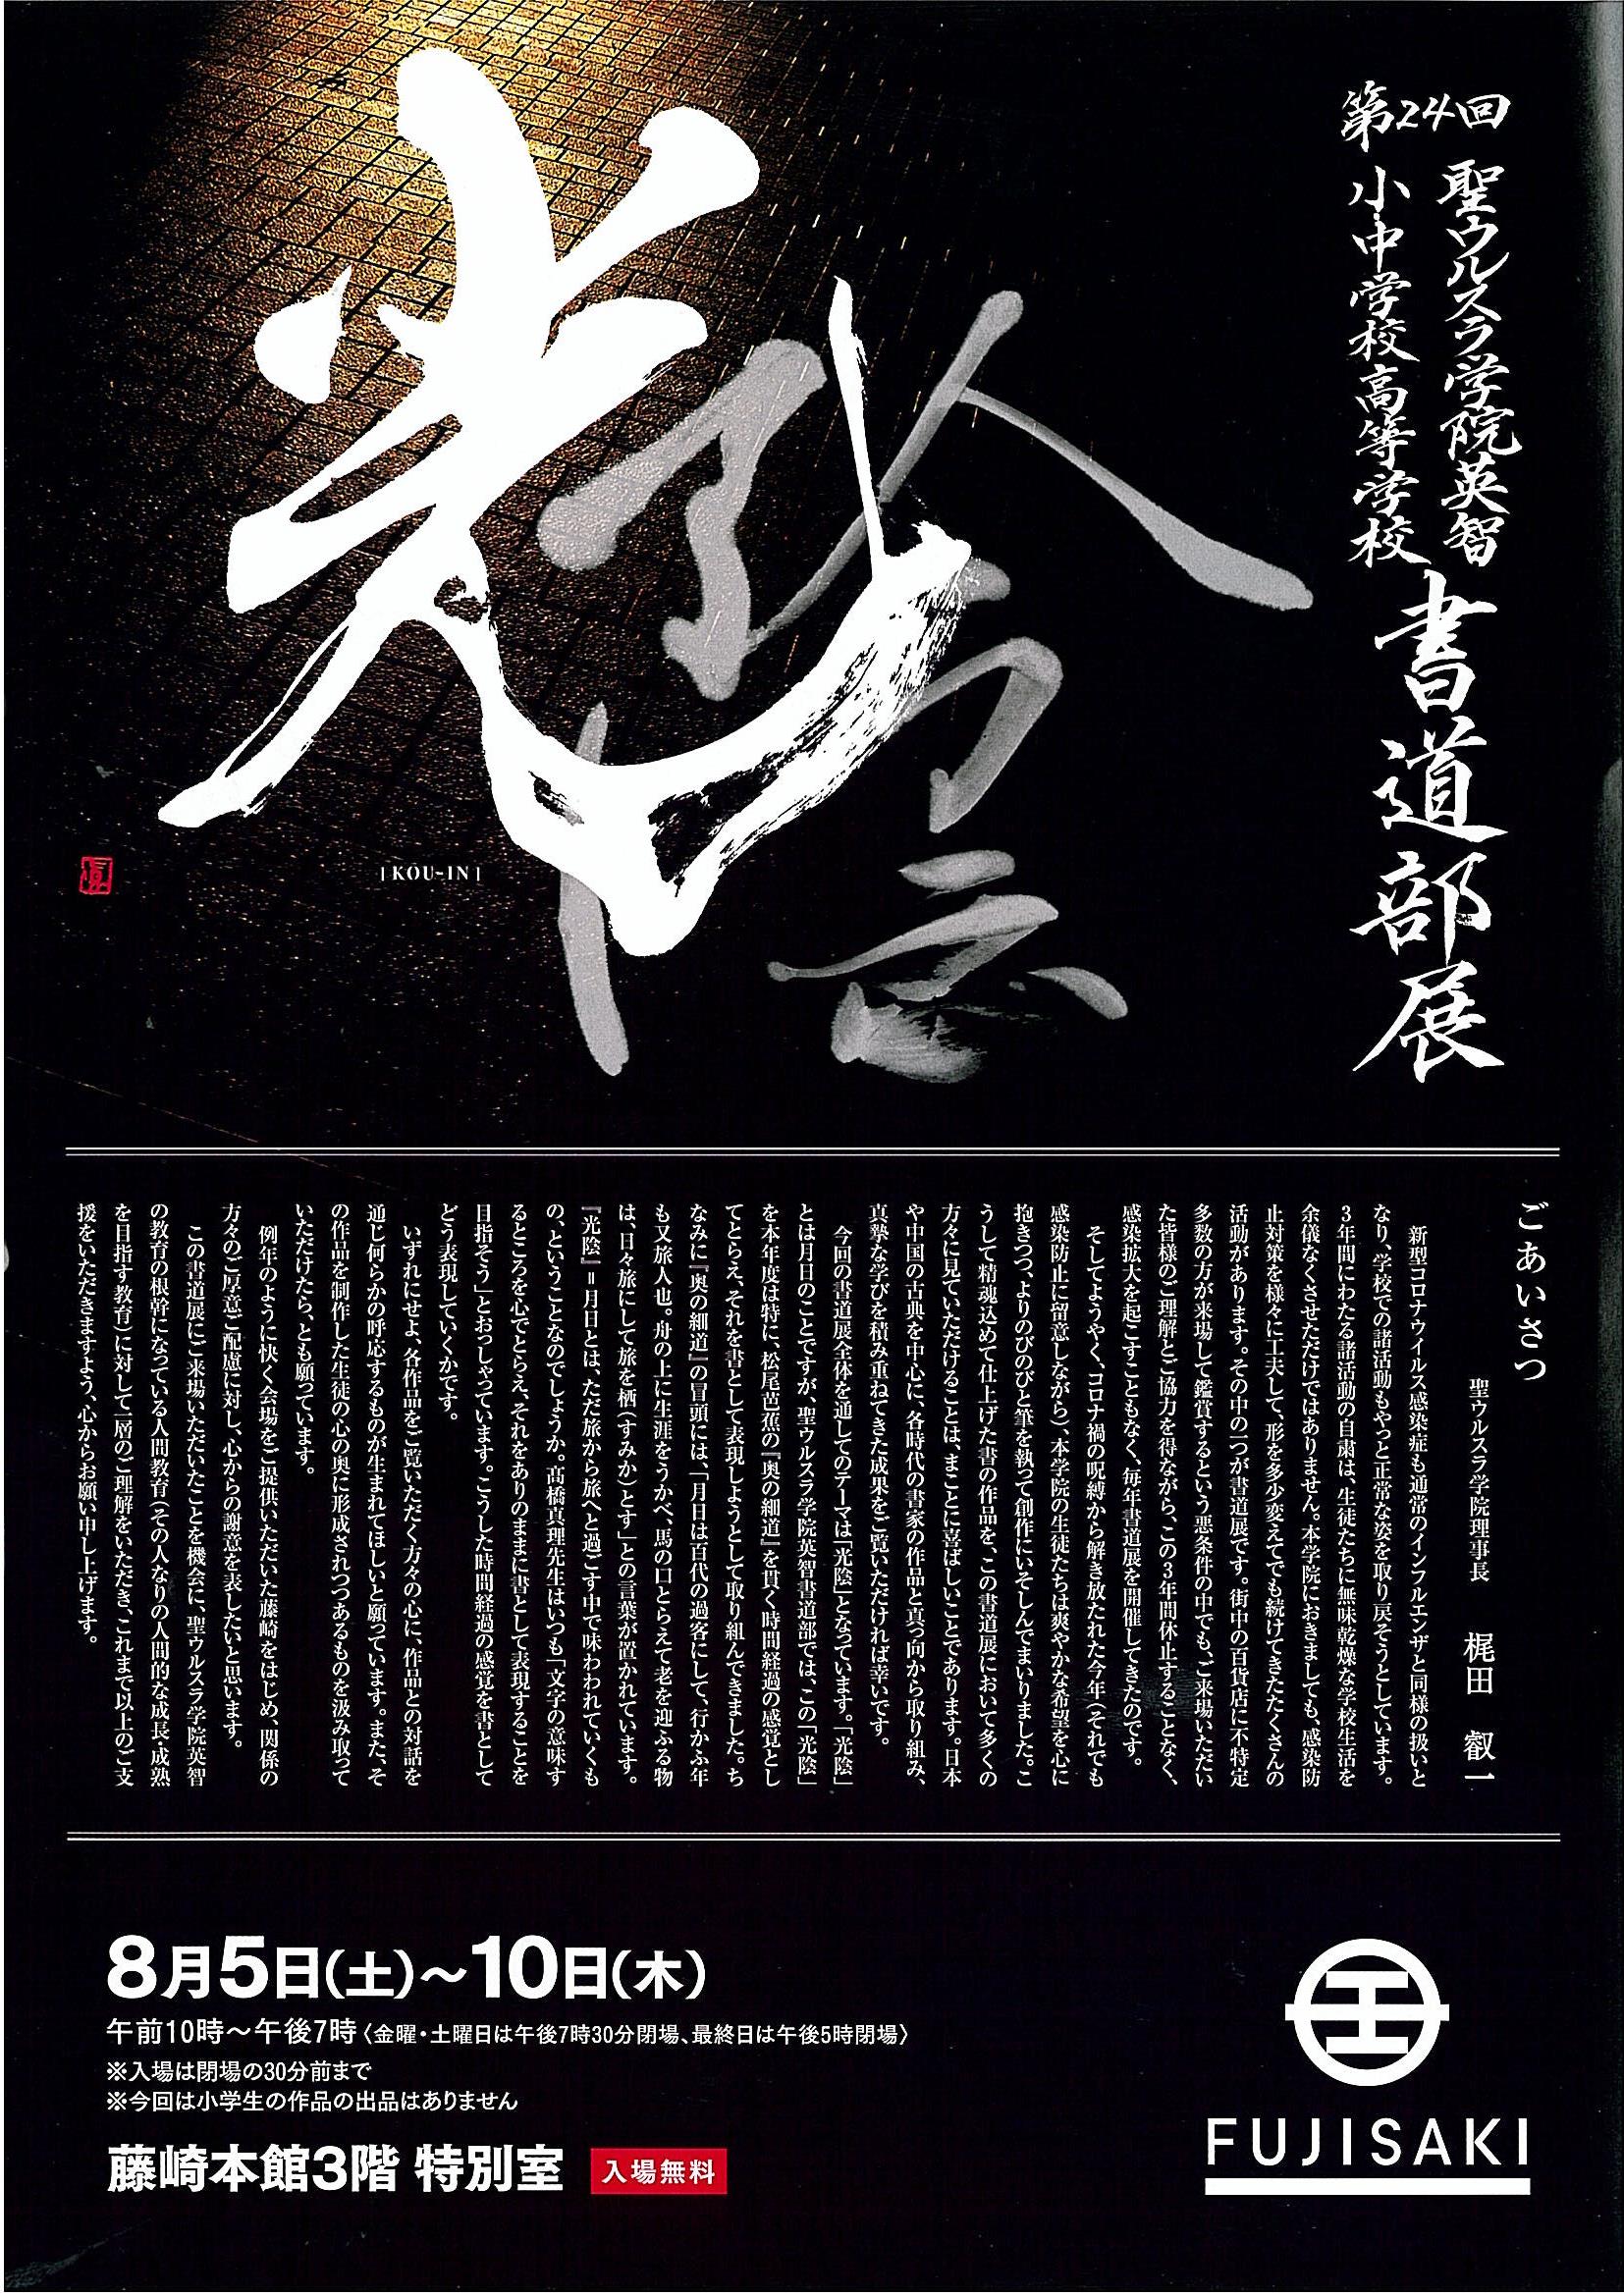 第24回
聖ウルスラ学院英智
小・中学校高等学校
書道部展
光陰
[KOU-IN]
ごあいさつ
聖ウルスラ学院理事長　梶田　叡一
新型コロナウイルス感染症も通常のインフルエンザと同様の扱いと
なり、学校での諸活動もやっと正常な姿を取り戻そうとしています。
3年間にわたる諸活動の自粛は、生徒たちに無味乾燥な学校生活を
余儀なくさせただけではありません。本学院におきましても、感染防
止対策を様々に工夫して、形を多少変えてでも続けてきたたくさんの
活動があります。その中の一つが書道展です。街中の百貨店に不特定
多数の方が来場して鑑賞するという悪条件の中でも、ご来場いただい
た皆様のご理解とご協力を得ながら、この3年間休止することなく、
感染拡大を起こすこともなく、毎年書道展を開催してきたのです。
そしてようやく、コロナ禍の呪縛から解き放たれた今年（それでも
感染防止に留意しながら）、本学院の生徒たちは爽やかな希望を心に
抱きつつ、よりのびのびと筆を執って創作にいそしんでまいりました。こ
うして精魂込めて仕上げた書の作品を、この書道展において多くの
方々に見ていただけることは、まことに喜ばしいことであります。日本
や中国の古典を中心に、各時代の書家の作品と真っ向から取り組み、
真摯な学びを積み重ねてきた成果をご覧いただければ幸いです。
今回の書道展全体を通してのテーマは「光陰」となっています。「光陰」
とは月日のことですが、聖ウルスラ学院英智書道部では、この「光陰」
を本年度は特に、松尾芭蕉の『奥の細道』を貫く時間経過の感覚とし
てとらえ、それを書として表現しようとして取り組んできました。ち
なみに『奥の細道』の冒頭には、「月日は百代の過客にして、行かふ年
も又旅人也。舟の上に生涯をうかべ、馬の口とらえて老を迎ふる物
は、日々旅にして旅を栖（すみか）とす」との言葉が置かれています。
『光陰』＝月日とは、ただ旅から旅へと過ごす中で味わわれていくも
の、ということなのでしょうか。高橋真理先生はいつも「文字の意味す
るところを心でとらえ、それをありのままに書として表現することを
目指そう」とおっしゃっています。こうした時間経過の感覚を書として
どう表現していくかです。
いずれにせよ、各作品をご覧いただく方々の心に、作品との対話を
通じ何らかの呼応するものが生まれてほしいと願っています。また、そ
の作品を制作した生徒の心の奥に形成されつつあるものを汲み取って
いただけたら、とも願っています。
例年のように快く会場をご提供いただいた藤崎をはじめ、関係の
方々のご厚意ご配慮に対し、心からの謝意を表したいと思います。
この書道展にご来場いただいたことを機会に、聖ウルスラ学院英智
の教育の根幹になっている人間教育（その人なりの人間的な成長・成熟
を目指す教育）に対して一層のご理解をいただき、これまで以上のご支
援をいただきますよう、心からお願い申し上げます。
8月5日(土)〜10日(木)
午前10時〜午後7時〈金曜・土曜日は午後7時30分閉場、最終日は午後5時閉場〉
※入場は閉場の30分前まで
※今回は小学生の作品の出品はありません
藤崎本館3階 特別室
入場無料
FUJISAKI